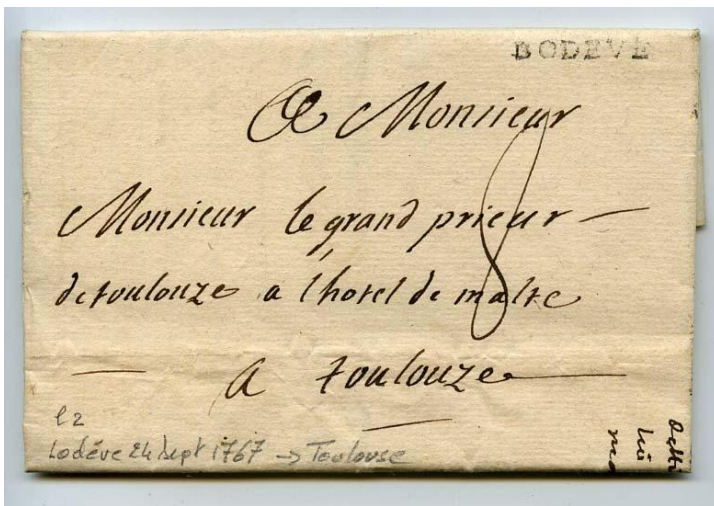 BODEVE
A Monsieur
8
Monsieur le grand prieur
de toulouze a l'hotel de malte
a toulouze
l2
Lodève 24 sept 1767 → Toulouse